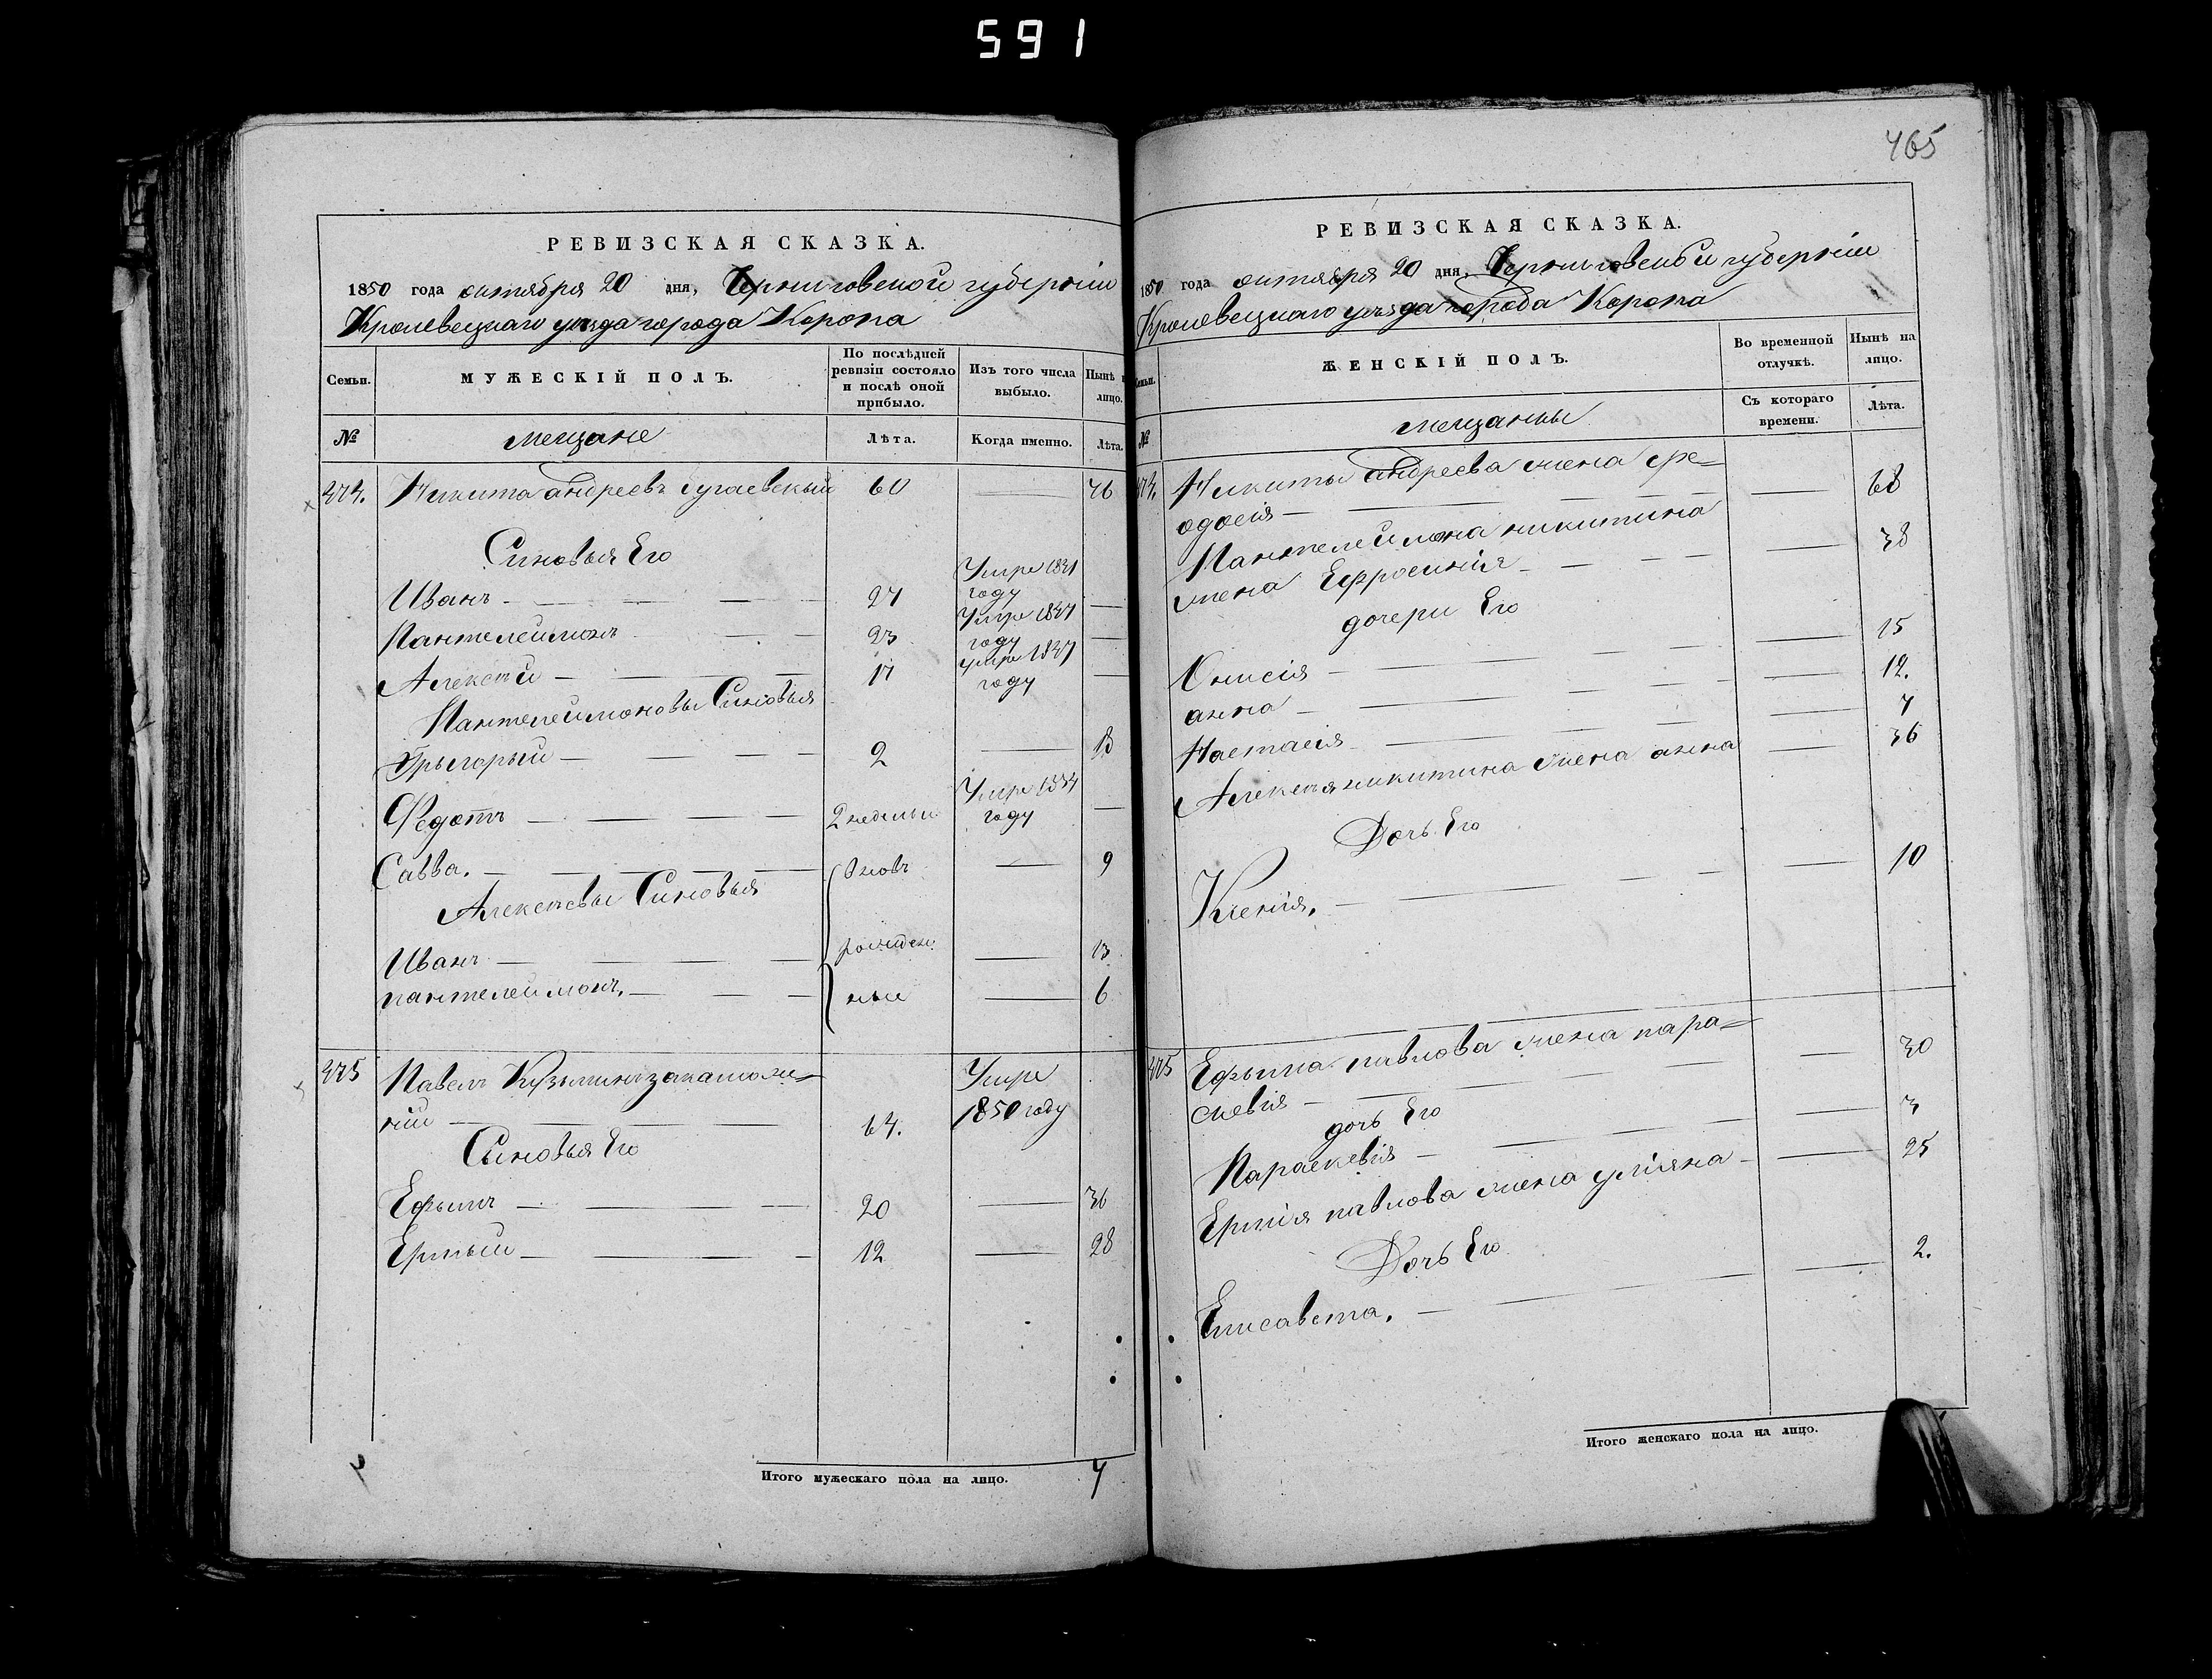 591
РЕВИЗСКАЯ СКАЗКА.
1850 года октября 20 дня, Черниговской губернии
Кролевецкаго уезда города Коропа
Семьи. МУЖЕСКІЙ ПОЛЪ. По послѣдней ревизіи состояло и послѣ оной прибыло. Изъ того числа выбыло. Нынѣ н лицо.
№ мещане Лѣта. Когда именно. Лѣта.
Никита андреевъ 60 — 76
Синовья Его
Иванъ 27 Умре 1831 году —
Пантелеймонъ 23 Умре 1847 году —
Алексѣй 17 умре 1847 году —
Пантелеймоновы Синовья
Григорый 2 — 18
Федотъ 2 недѣльи Умре 1834 году —
Савва. вновь — 9
Алексѣевы Синовья
Иванъ рожден — 13
пантелеймонъ. ные — 6
375 Павелъ Кузьминъ
64. Умре 1850 году
Сыновья Его
Ефымъ 20 — 36
12 — 28
Итого мужескаго пола на лицо. 7
465
РЕВИЗСКАЯ СКАЗКА.
1850 года октября 20 дня, Черниговской губерніи
Кролевецкаго уезда города Коропа
Семьи. ЖЕНСКІЙ ПОЛЪ. Во временной отлучкѣ. Нынѣ на лицо.
№ мещанки Съ котораго времени. Лѣта.
Никиты андреева жена Фе=
одосія — 68
Пантелеймона никитина
жена Ефросинія — 38
дочери Его
Онисія — 15
анна — 12.
Настасія — 7
Алексѣя никитина жена анна — 36
Дочь Его
Ксенія. — 10
375 Ефыма павлова жена пара=
скевія — 30
дочь Его
Параскевія — 3
павлова жена улияна — 25
Дочь Его
Елисавета. — 2.
Итого женскаго пола на лицо.